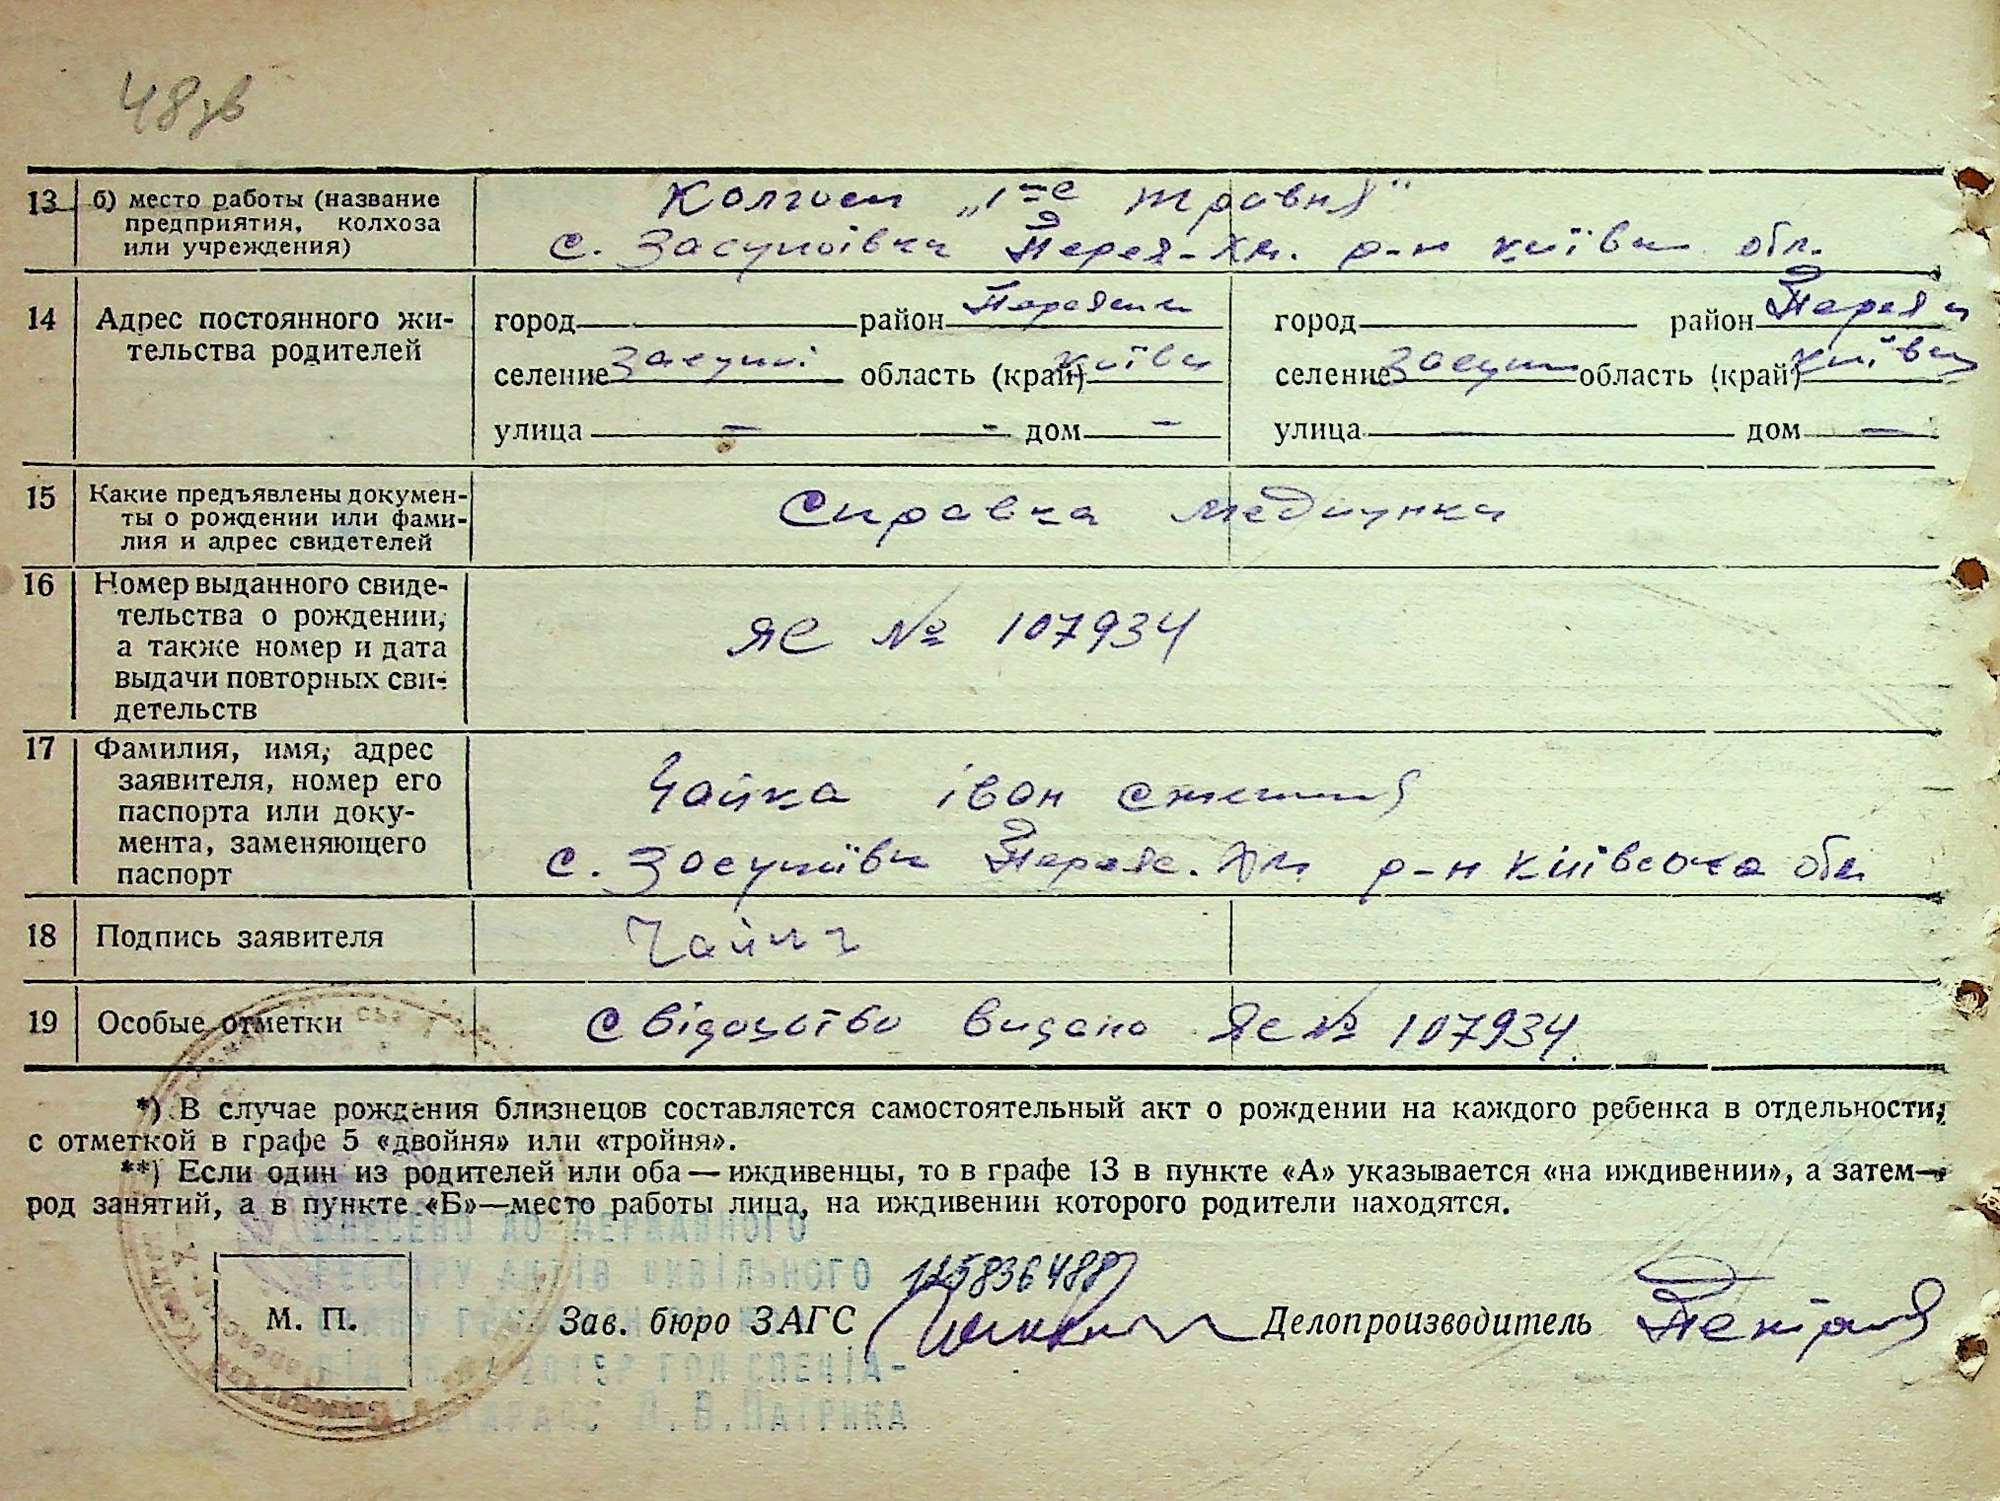 48зв
13 б) место работы (название
предприятия, колхоза
или учреждения)
Колгосп „1-е травня"
с. Засупоївка Перея-Хм. р-н київськ обл.
14 Адрес постоянного жи-
тельства родителей
город район город район
селение область (край) Київ селение область (край) Київ
улица — - дом - улица дом —
15 Какие предъявлены докумен-
ты о рождении или фами-
лия и адрес свидетелей
Справка медпункта
16 Номер выданного свиде-
тельства о рождении,
а также номер и дата
выдачи повторных сви-
детельств
ЯС № 107934
17 Фамилия, имя, адрес
заявителя, номер его
паспорта или доку-
мента, заменяющего
паспорт
Чайка Іван
с. Засупоївка Переяс. Хм р-н Київська обл
18 Подпись заявителя
Чайка
19 Особые отметки
Свідоцтво видано ЯС № 107934.
*) В случае рождения близнецов составляется самостоятельный акт о рождении на каждого ребенка в отдельности,
с отметкой в графе 5 «двойня» или «тройня».
**) Если один из родителей или оба — иждивенцы, то в графе 13 в пункте «А» указывается «на иждивении», а затем—
род занятий, а в пункте «Б»—место работы лица, на иждивении которого родители находятся.
ВНЕСЕНО ДО ДЕРЖАВНОГО
РЕЄСТРУ АКТІВ ЦИВІЛЬНОГО
СТАНУ ГРОМАДЯН
М. П. Зав. бюро ЗАГС Делопроизводитель
ГОЛ СПЕЦІА-
В. ПАТРИКА